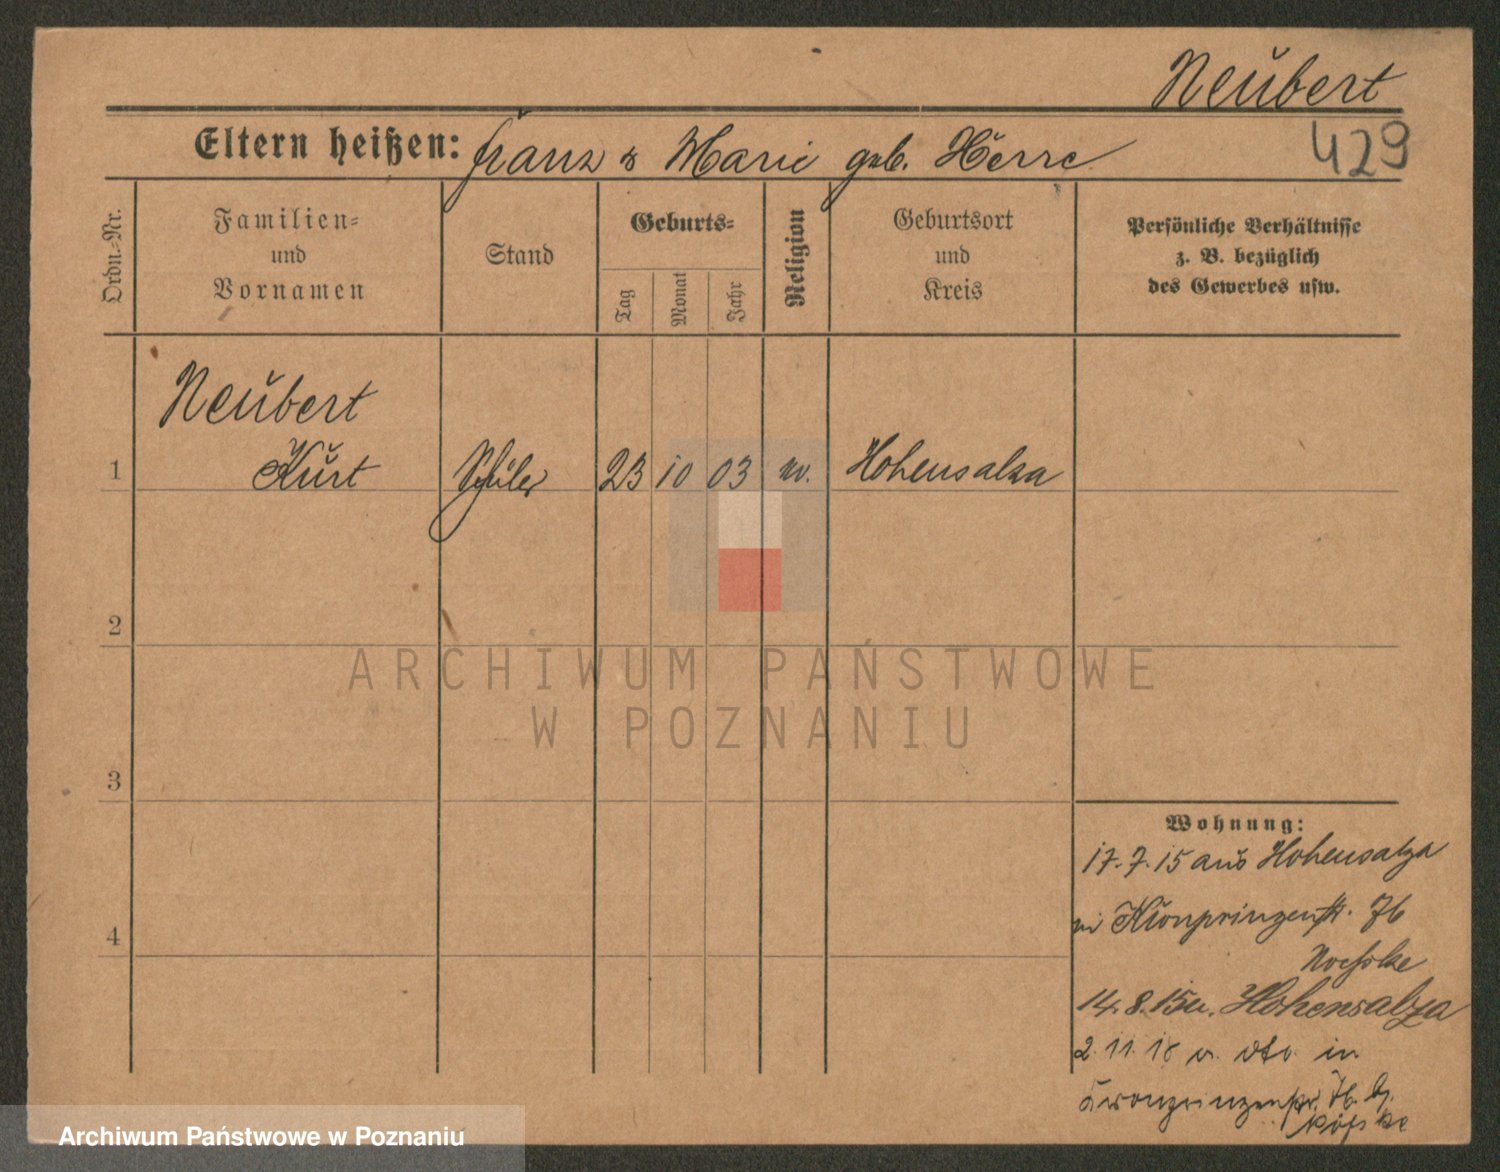 Neubert
429
Eltern heißen: Franz & Marie geb. Herre
Ordn.-Nr.
Familien-
und
Vornamen
Stand
Geburts-
Tag
Monat
Jahr
Religion
Geburtsort
und
Kreis
Persönliche Verhältnisse
z. B. bezüglich
des Gewerbes usw.
Neubert
1 Kurt Schüler 23 10 03 ev. Hohensalza
2
3
4
ARCHIWUM PAŃSTWOWE
W POZNANIU
Wohnung:
17. 7. 15 aus Hohensalza
in Kronprinzenstr. 76
14. 8. 15 n. Hohensalza
2. 11. 18 v. dto. in
Kronprinzenstr. 76. b.
Archiwum Państwowe w Poznaniu